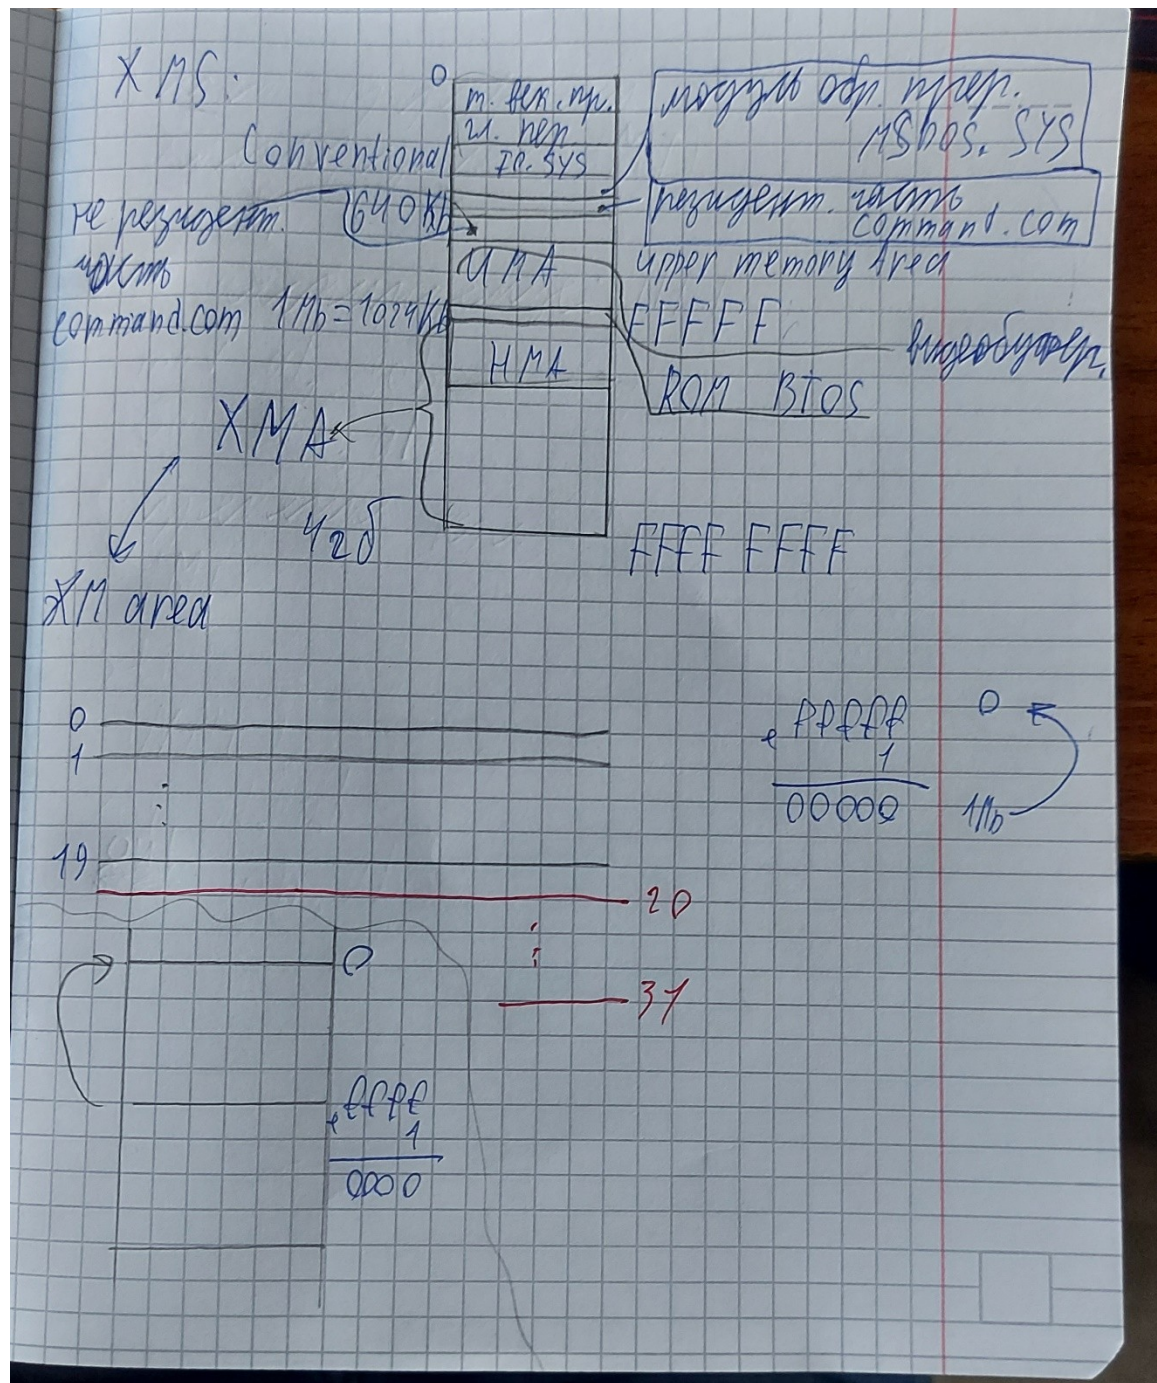 XMS:
0
т. век. пр.
гл. пер
IO.SYS
Conventional
640Кб
модуль обр. прер.
MSDOS. SYS
резидент. часть
command.com
не резидент.
часть
command.com
UMA
upper memory Area
1Mb = 1024Кб
FFFFF
видеобуфер.
HMA
ROM BIOS
XMA
4гб
FFFF FFFF
XM area
0
1
19
20
31
fffff
1
00000
0
1Mb
0
ffff
1
0000